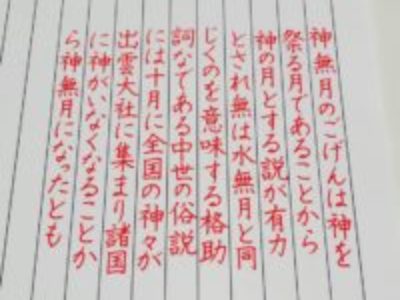 神無月のごげんは神を
祭る月であることから
神の月とする説が有力
とされ無は水無月と同
じくのを意味する格助
詞なである中世の俗説
には十月に全国の神々が
出雲大社に集まり諸国
に神がいなくなることか
ら神無月になったとも